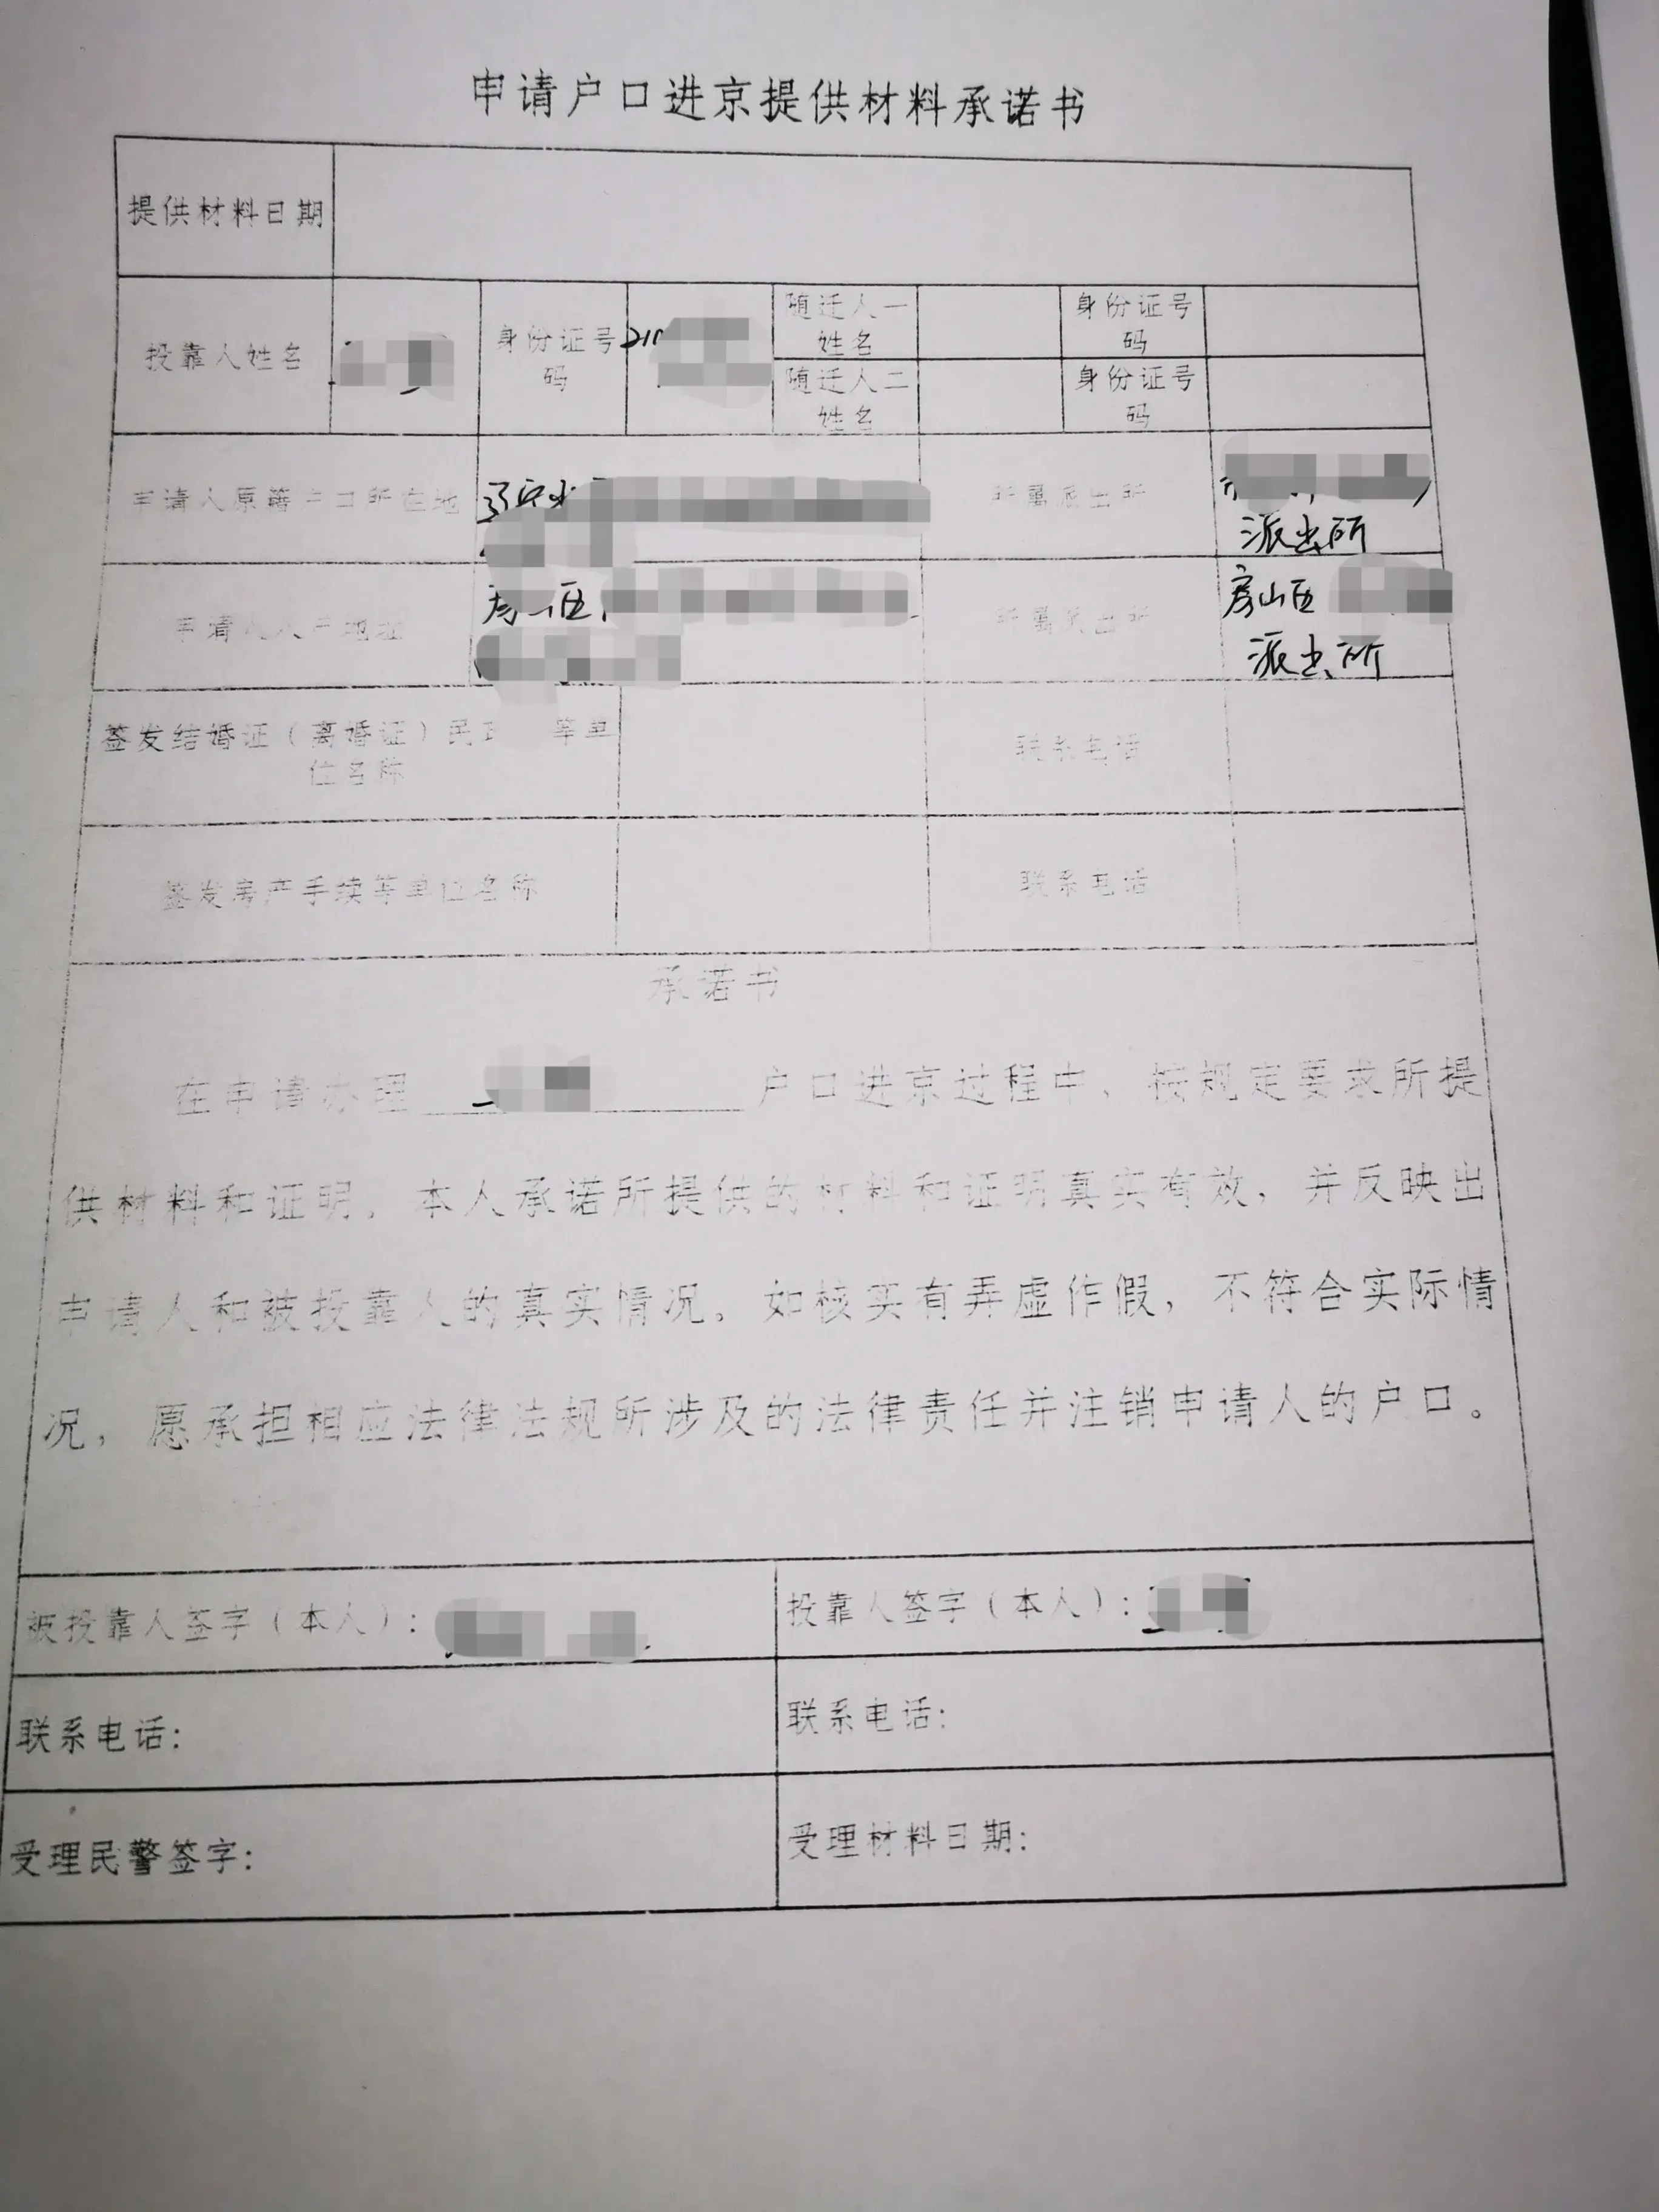 申请户口进京提供材料承诺书
提供材料日期
投靠人姓名
身份证号
码
随迁人一
姓名
身份证号
码
随迁人二
姓名
身份证号
码
申请人原籍户口所在地
辽宁
所属派出所
派出所
申请人入户地址
房山区
所属派出所
房山区
派出所
签发结婚证（离婚证）民政 等单
位名称
联系电话
签发房产手续等单位名称
联系电话
承诺书
在申请办理 户口进京过程中，按规定要求所提
供材料和证明，本人承诺所提供的材料和证明真实有效，并反映出
申请人和被投靠人的真实情况。如核实有弄虚作假，不符合实际情
况，愿承担相应法律法规所涉及的法律责任并注销申请人的户口。
被投靠人签字（本人）：
投靠人签字（本人）：
联系电话：
联系电话：
受理民警签字：
受理材料日期：